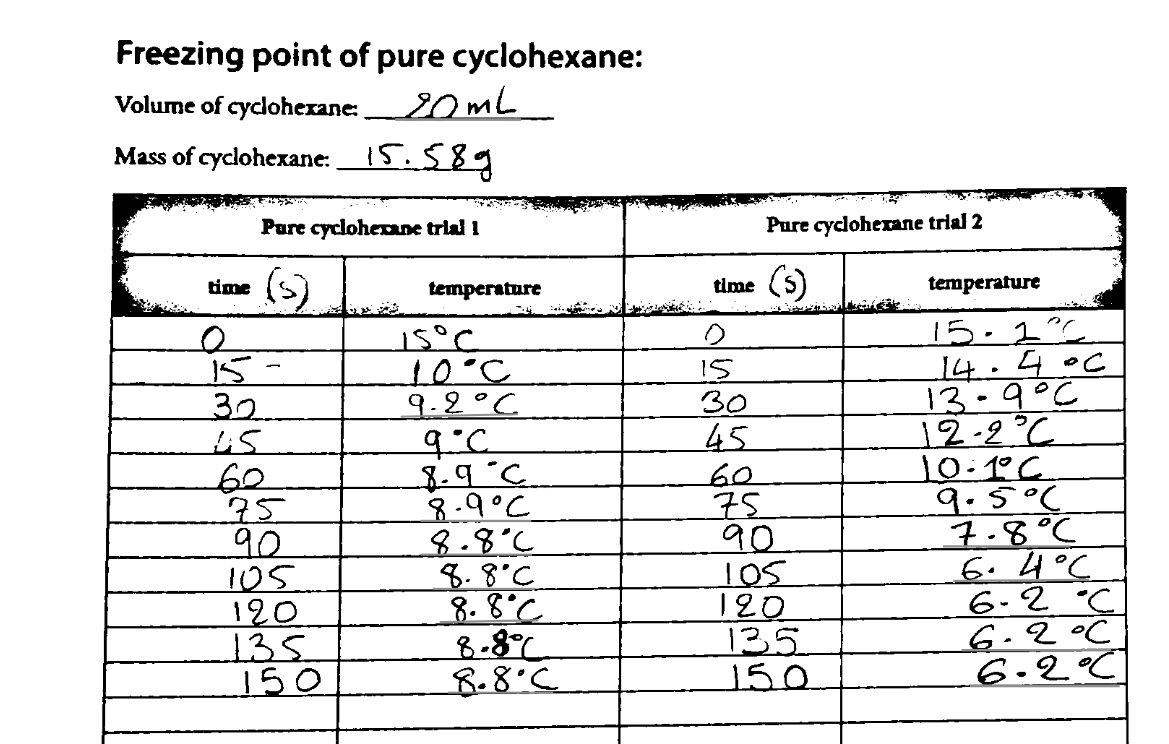 Freezing point of pure cyclohexane:
Volume of cyclohexane: 20 mL
Mass of cyclohexane: 15.58g
Pure cyclohexane trial 1 Pure cyclohexane trial 2
time (s) temperature time (s) temperature
0 15°C 0 15.1°C
15 - 10°C 15 14.4°C
30 9.2°C 30 13.9°C
45 9°C 45 12.2°C
60 8.9°C 60 10.1°C
75 8.9°C 75 9.5°C
90 8.8°C 90 7.8°C
105 8.8°C 105 6.4°C
120 8.8°C 120 6.2°C
135 8.8°C 135 6.2°C
150 8.8°C 150 6.2°C